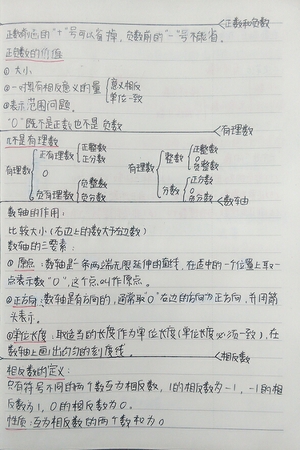 正数和负数
正数前面的"+"号可以省掉，负数前的"-"号不能省。
正负数的价值
① 大小
②一对具有相反意义的量 意义相反 单位一致
③表示范围问题.
"0"既不是正数也不是负数
有理数
π不是有理数
有理数 正有理数 正整数 正分数 0 负有理数 负整数 负分数
有理数 整数 正整数 0 负整数 分数 正分数 负分数
数轴
数轴的作用：
比较大小(右边上的数大于左边数)
数轴的三要素：
① 原点：数轴是一条两端无限延伸的直线，在适中的一个位置上取一
点表示数"0"，这个点叫作原点。
②正方向：数轴是有方向的，通常取"0"右边的方向为正方向，并用箭
头表示。
③单位长度：取适当的长度作为单位长度(单位长度必须一致)，在
数轴上画出均匀的刻度线。
相反数
相反数的定义：
只有符号不同的两个数互为相反数，1的相反数为-1，-1的相
反数为1，0的相反数为0。
性质：互为相反数的两个数和为0